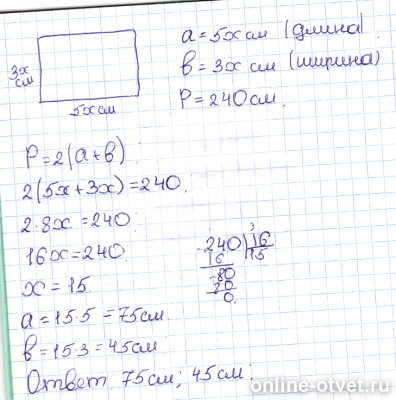 a = 5x см (длина)
3x
см
в = 3x см (ширина)
5x см
P = 240 см.
P = 2(a+в)
2(5x+3x) = 240.
2·8x = 240.
16x = 240.
240 | 16
16 | 15
x = 15.
-80
80
0.
a = 15·5 = 75 см.
в = 15·3 = 45 см
Ответ 75 см; 45 см.
online-otvet.ru